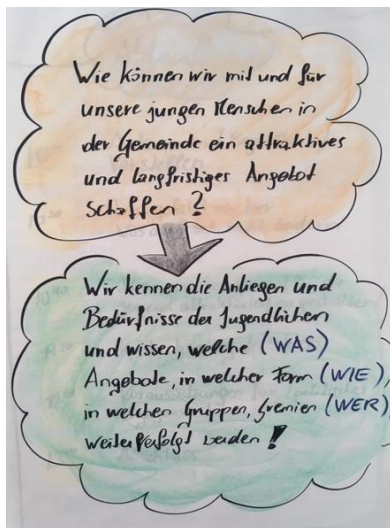 Wie können wir mit und für
unsere jungen Menschen in
der Gemeinde ein attraktives
und langfristiges Angebot
schaffen?
Wir kennen die Anliegen und
Bedürfnisse der Jugendlichen
und wissen, welche (WAS)
Angebote, in welcher Form (WIE),
in welchen Gruppen, Gremien (WER)
weiterverfolgt werden!